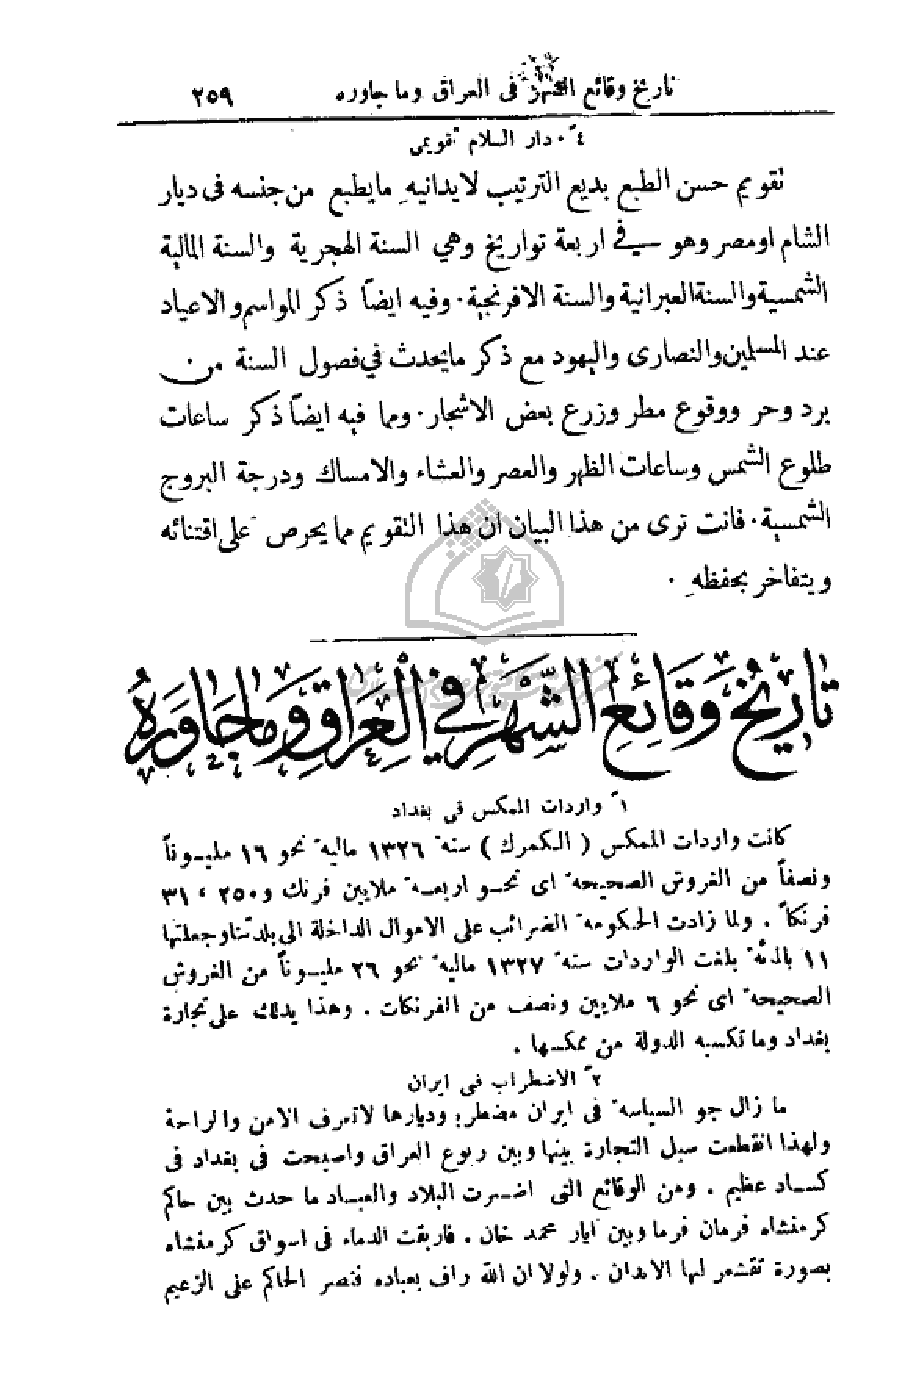 تاريخ وقائع الشهر فى العراق وما جاوره ٢٥٩
٤ً ٠ دار السلام تقويمى
تقويم حسن الطبع بديع الترتيب لايدانيه مايطبع من جنسه فى ديار
الشام اومصر وهو في اربعة تواريخ وهي السنة الهجرية والسنة المالية
الشمسية والسنة العبرانية والسنة الافرنجية ٠ وفيه ايضاً ذكر المواسم والاعياد
عند المسلمين والنصارى واليهود مع ذكر مايحدث في فصول السنة من
برد وحر ووقوع مطر وزرع بعض الاشجار ٠ ومما فيه ايضاً ذكر ساعات
طلوع الشمس وساعات الظهر والعصر والعشاء والامساك ودرجة البروج
الشمسية ٠ فانت ترى من هذا البيان ان هذا التقويم مما يحرص على اقتنائه
ويتفاخر بحفظه ٠
تاريخ وقائع الشهر في العراق وما جاوره
١ً واردات المكس فى بغداد
كانت واردات المكس ( الكمرك ) سنة ١٣٢٦ مالية نحو ١٦ مليوناً
ونصفاً من الغروش الصحيحة اى نحو اربعة ملايين فرنك و٢٥٠ ، ٣١
فرنكاً . ولما زادت الحكومة الضرائب على الاموال الداخلة الى بلدتنا وجعلتها
١١ بالمئة بلغت الواردات سنة ١٣٢٧ مالية نحو ٢٦ مليوناً من الغروش
الصحيحة اى نحو ٦ ملايين ونصف من الفرنكات . وهذا يدلك على تجارة
بغداد وما تكسبه الدولة من مكسها .
٢ً الاضطراب فى ايران
ما زال جو السياسة فى ايران مضطرب وديارها لاتعرف الامن والراحة
ولهذا انقطعت سبل التجارة بينها وبين ربوع العراق واصبحت فى بغداد فى
كساد عظيم . ومن الوقائع التى اضرت البلاد والعباد ما حدث بين حاكم
كرمنشاه فرمان فرما وبين ايار محمد خان . فاريقت الدماء فى اسواق كرمنشاه
بصورة تقشعر لها الابدان . ولولا ان الله راف بعباده فنصر الحاكم على الزعيم